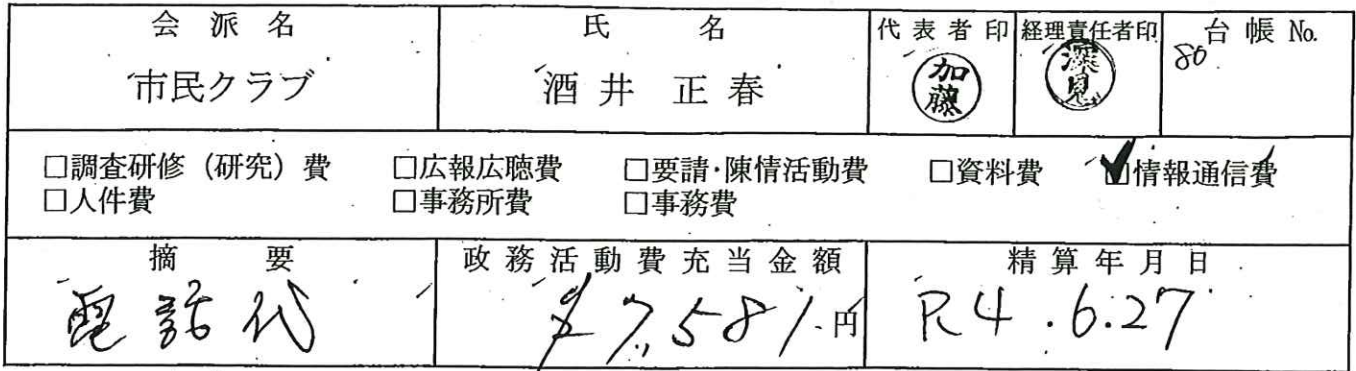 会派名 氏名 代表者印 経理責任者印 台帳 No.
市民クラブ 酒井 正春 加藤 深見 80
□調査研修(研究)費 □広報広聴費 □要請・陳情活動費 □資料費 ☑情報通信費
□人件費 □事務所費 □事務費
摘要 政務活動費充当金額 精算年月日
電話代 ¥7,581.円 R4.6.27